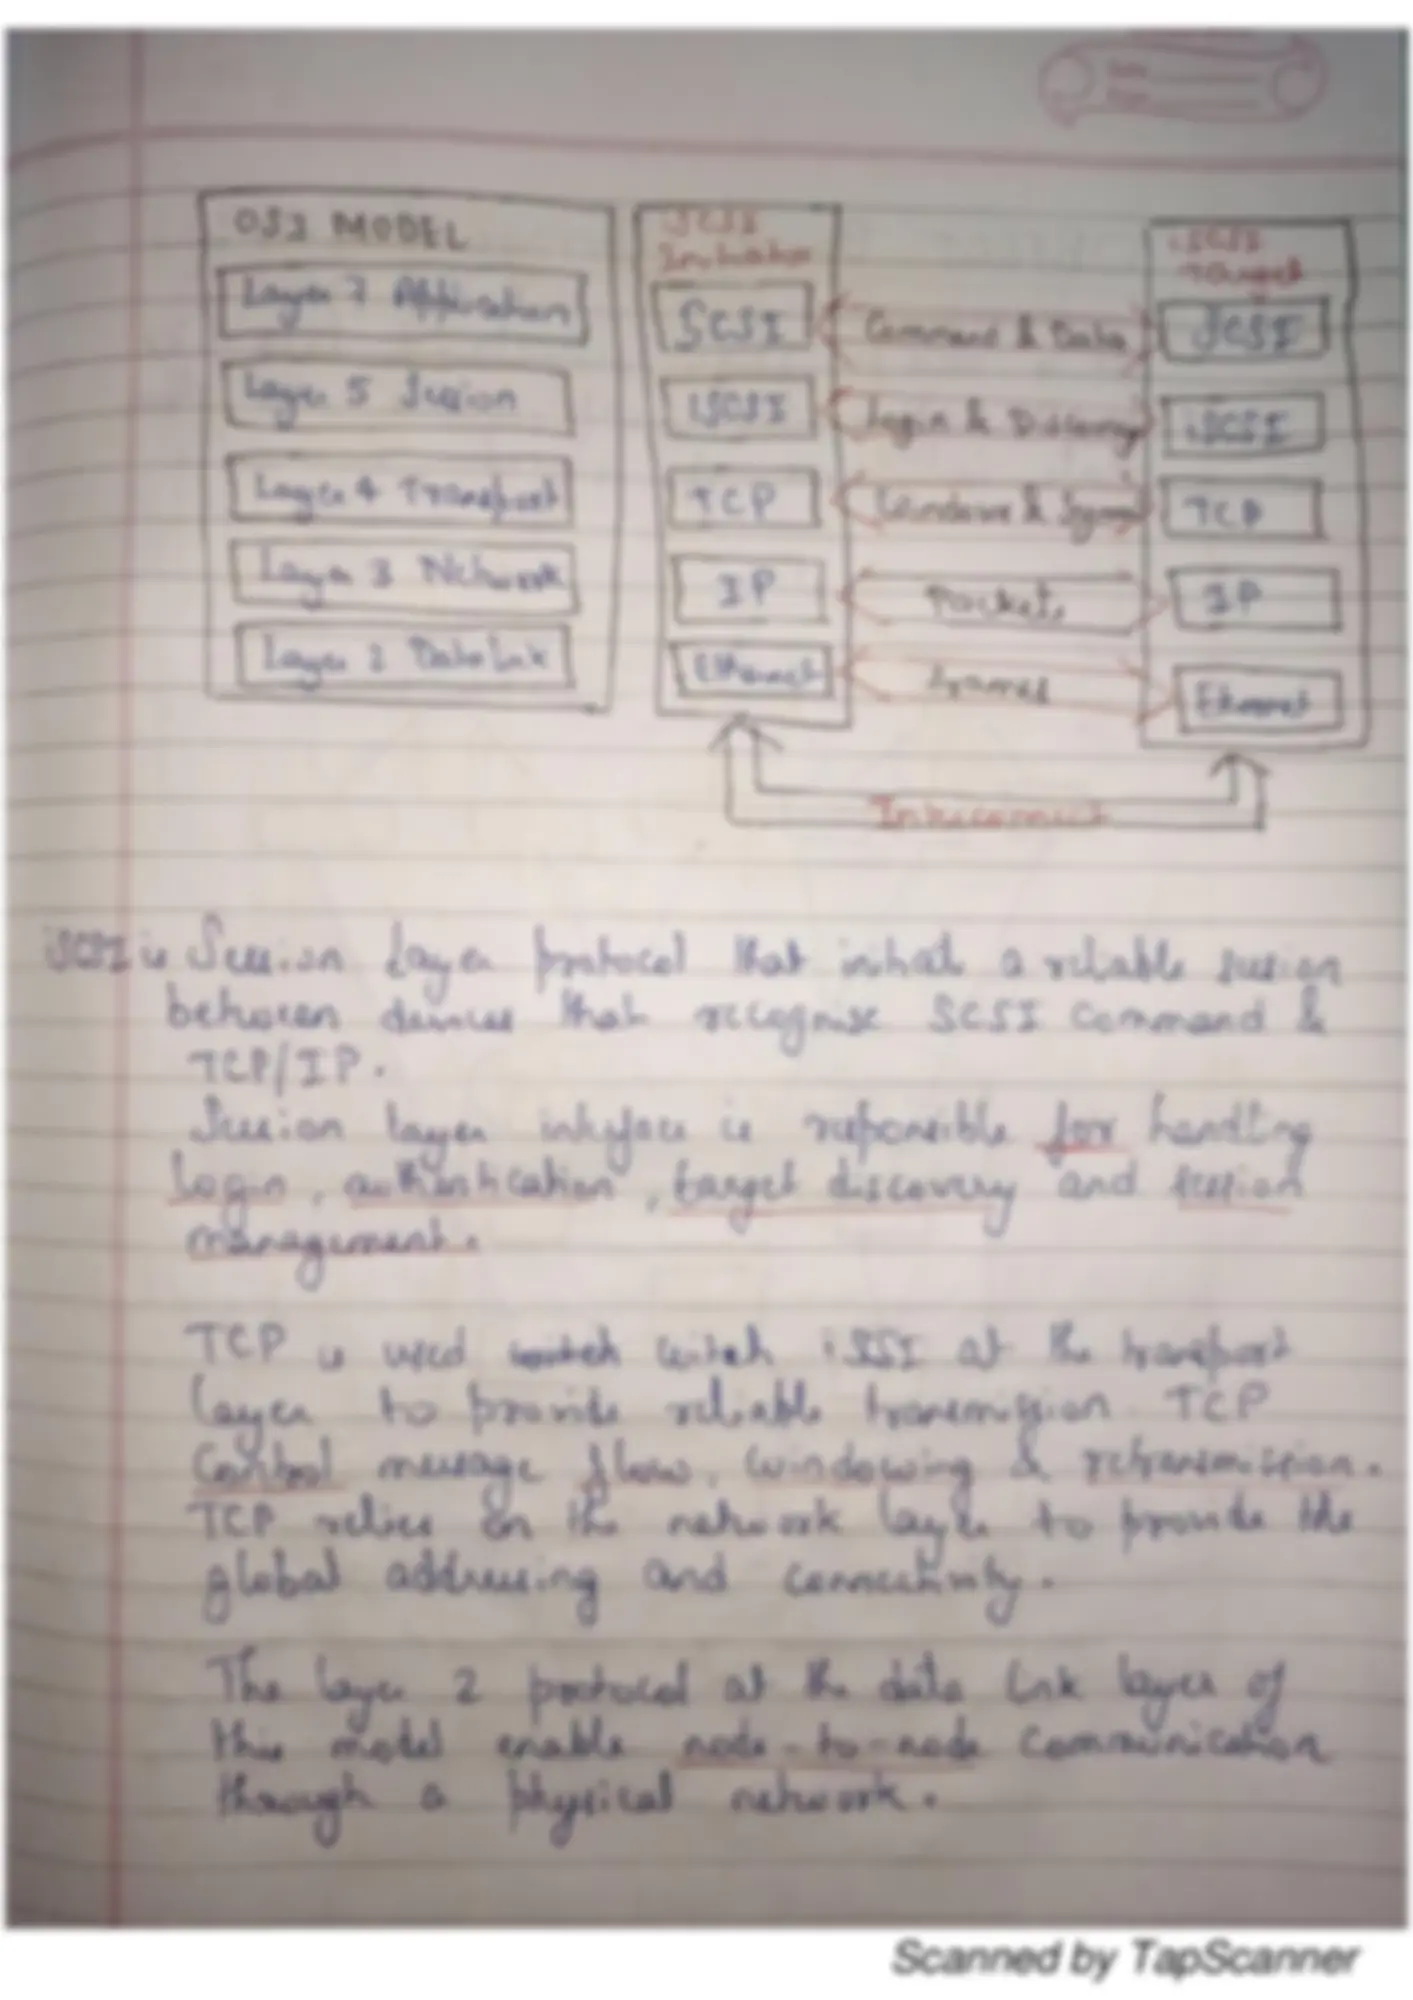 OSI MODEL
Layer 7 Application
Layer 5 Session
Layer 4 Transport
Layer 3 Network
Layer 2 Data Link
iSCSI
Initiator
SCSI
iSCSI
TCP
IP
Ethernet
Command & Data
Login & Discovery
Windows &
Packets
Frames
iSCSI
Target
SCSI
iSCSI
TCP
IP
Ethernet
Interconnect
iSCSI is Session layer protocol that initiate a reliable session
between devices that recognise SCSI Command &
TCP/IP.
Session layer interface is responsible for handling
login, authentication, target discovery and session
management.
TCP is used with iSSI at the transport
layer to provide reliable transmission TCP
Control message flow, windowing & retransmission.
TCP relies on the network layer to provide the
global addressing and connectivity.
The layer 2 protocol at the data link layer of
this model enable node-to-node communication
through a physical network.
Scanned by TapScanner